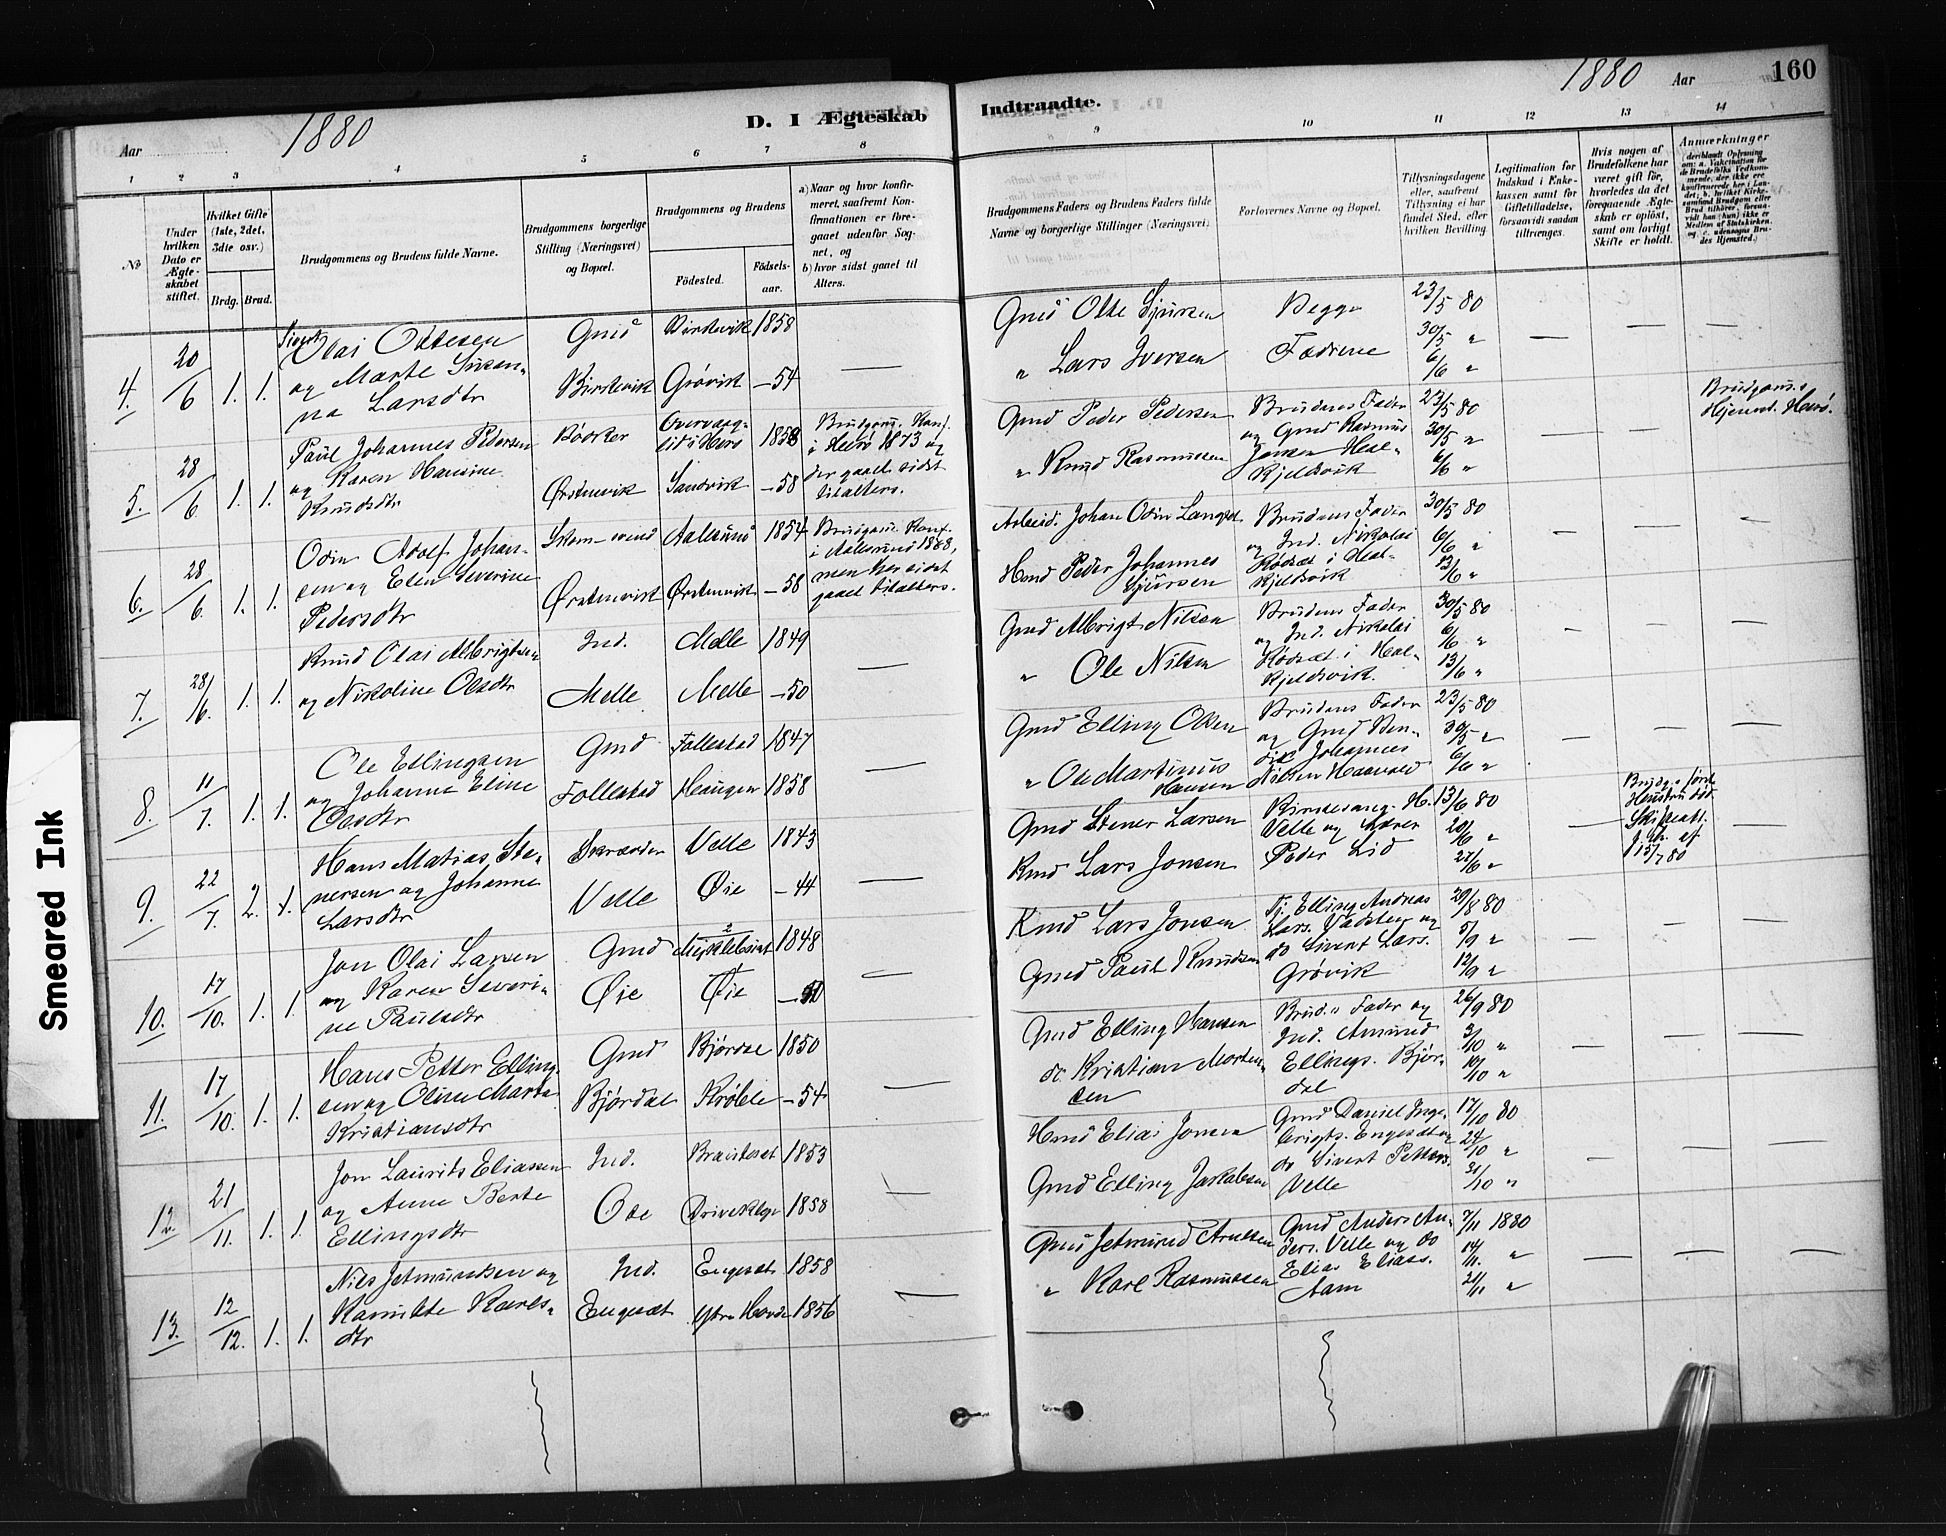 Aar 1880
D. I Ægteskab
Indtraadte.
1880 Aar 160
1 2 3 4 5 6 7 8 9 10 11 12 13 14
No
Under hvilken Dato er Ægteskabet stiftet.
Hvilket Gifte (1ste, 2det, 3dte osv.)
Brdg. Brud.
Brudgommens og Brudens fulde Navne.
Brudgommens borgerlige Stilling (Næringsvei) og Bopæl.
Brudgommens og Brudens
Födested.
Födselsaar.
a) Naar og hvor konfirmeret, saafremt Konfirmationen er foregaaet udenfor Sognet, og
b) hvor sidst gaaet til Alters.
Brudgommens Faders og Brudens Faders fulde Navne og borgerlige Stillinger (Næringsvei)
Forlovernes Navne og Bopæl.
Tillysningsdagene eller, saafremt Tillysning ei har fundet Sted, efter hvilken Bevilling
Legitimation for Indskud i Enkekassen samt for Giftetilladelse, forsaavidt saadan tiltrænges.
Hvis nogen af Brudefolkene har været gift før, hvorledes da det foregaaende Ægteskab er opløst, samt om lovligt Skifte er holdt.
Anmærkninger
4. 20/6 1. 1.
Sivert
Olai Ottesen
og Marte Susan-
na Larsdtr
Gmd
Birkevik
Grøvik
1858
—54
Gmd Otte Sjursen
„ Lars Iversen
Begge
Fædrene
23/5 80
30/5 „
6/6 „
5. 28/6. 1. 1.
Paul Johannes Pedersen
og Karen Hansine
Knudsdtr
Bødker
Ørstenvik
Sandvik
1858
—58
Brudgom. Konf.
i Herø 1873 og
der gaaet sidst
til alters.
Gmd Peder Pedersen
„ Knud Rasmussen
Brudens Fader
og Gmd Rasmus
Jensen Hel-
kjeldsvik
23/5 80
30/5 „
6/6 „
Brudgom.s
Hjemst. Herø.
6. 28/6. 1. 1.
Odin Adolf Johan-
sen og Elen Severine
Pedersdtr
Ørstenvik
Aalesund
Ørstenvik
1854
—58
Brudgom. Konf.
i Aalesund 1868,
men her sidst
gaaet til alters.
Arbeid. Johan Odin
Hmd Peder Johannes
Sjursen
Brudens Fader
og Ind. Nikolai
Rødsæt i Hel-
kjeldsvik
30/5 80
6/6 „
13/6 „
7. 28/6. 1. 1.
Knud Olai Albrigtsen
og Nikoline Olsdtr
Ind.
Melle
Melle
Melle
1849
—50
Gmd Albrigt Nilsen
„ Ole Nilsen
Brudens Fader
og Ind. Nikolai
Rødsæt i Hel-
kjeldsvik.
30/5 80
6/6 „
13/6 „
8. 11/7. 1. 1.
Ole Ellingsen
og Johanne Eline
Olsdtr
Gmd
Follestad
Follestad
Haugen
1847
1858
Gmd Elling Olsen
„ Ole Martinus
Hansen
Brudens Fader
og Gmd Ben-
dik Johannes
Nilsen
23/5 80
30/5 „
6/6 „
9. 22/7. 2. 1.
Hans Matias Ste-
nersen og Johanne
Larsdtr
Skrædder
Velle
Velle
Øie
1843
—44
Gmd Stener Larsen
Kmd Lars Jonsen
Velle og Lærer
Peder Lid
13/6 80
20/6 „
27/6 „
Brudg.s først
Hustru død.
Skifteatt.
af
15/7 80
10. 17/10. 1. 1.
Jon Olai Larsen
og Karen Severi-
ne Paulsdtr
Gmd
Øie
Øie
1848
Kmd Lars Jonsen
Gmd Paul Knudsen
Tj. Elling Andreas
Lars. Vadsten og
do Sivert Lars.
Grøvik
29/8 80
5/9 „
12/9 „
11. 17/10. 1. 1.
Hans Petter Elling-
sen og Oline Marta
Kristiansdtr
Gmd
Bjørdal
Bjørdal
1850
—54
Gmd Elling Hansen
do Kristian Morten-
sen
Brud.s Fader og
Ind. Amund
Ellings. Bjør-
dal
26/9 80
3/10 „
10/10 „
12. 21/11. 1. 1.
Jon Laurits Eliassen
og Anne Berte
Ellingsdtr
Ind.
Ose
1853
1858
Hmd Elias Jonsen
Gmd Elling Jakobsen
Gmd Daniel Inge-
brigts. Engesæt og
do Sivert Petters.
Velle
17/10 80
24/10 „
31/10 „
13. 12/12. 1. 1.
Nils Jetmundsen og
Kamilde Karls-
dtr
Ind.
Engesæt
Engesæt
Ytre Hovde
1858
1856
Gmd Jetmund Arnesen
„ Karl Rasmussen
Gmd Anders An-
ders. Velle og do
Elias Eliass.
Aam
7/11 1880
14/11. „
21/11 „
Smeared Ink